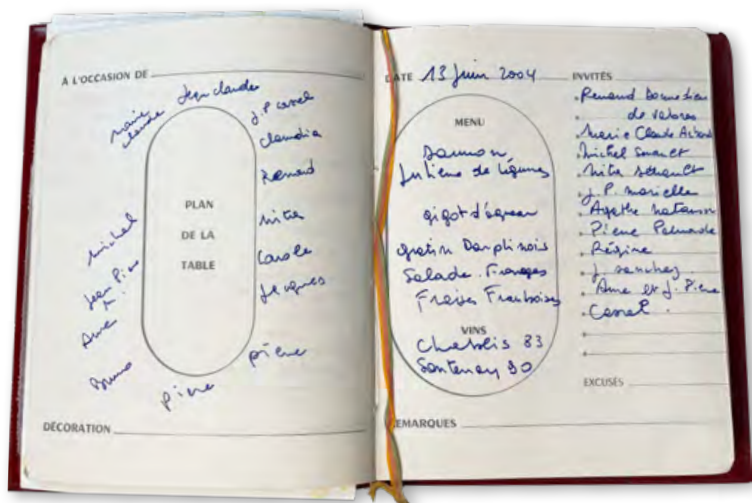 À L'OCCASION DE
Marie Claude
Jean Claude
J.P Cassel
Claudia
Renaud
Nita
Carole
Jacques
Pierre
Pierre
Bruno
Anne
Jean Pierre
Michel
PLAN
DE LA
TABLE
DÉCORATION
DATE 13 Juin 2004
MENU
Saumon
Julienne de légumes
gigot d'agneau
gratin Dauphinois
Salade. Fromages
Fraises Framboises
VINS
Chablis 83
Santenay 90
REMARQUES
INVITÉS
Renaud Donnedieu
de Vabres
Marie Claude
Michel
Nita
J.P. Marielle
Agathe Natanson
Pierre Palmade
Régine
J. Sanchez
Anne et J. Pierre
Cassel.
EXCUSÉS